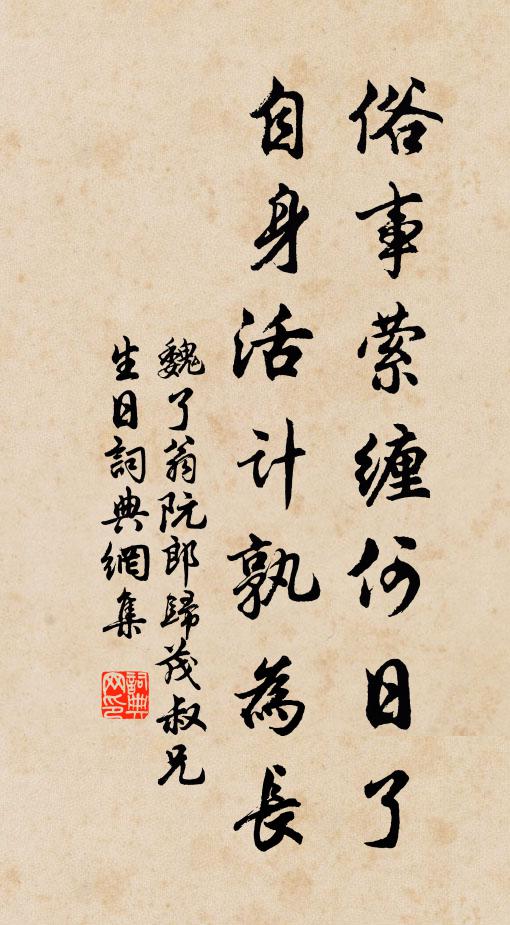 俗事縈纏何日了
自身活計孰為長
魏了翁阮郎歸茂叔兄
生日詞典網集
詞典網印